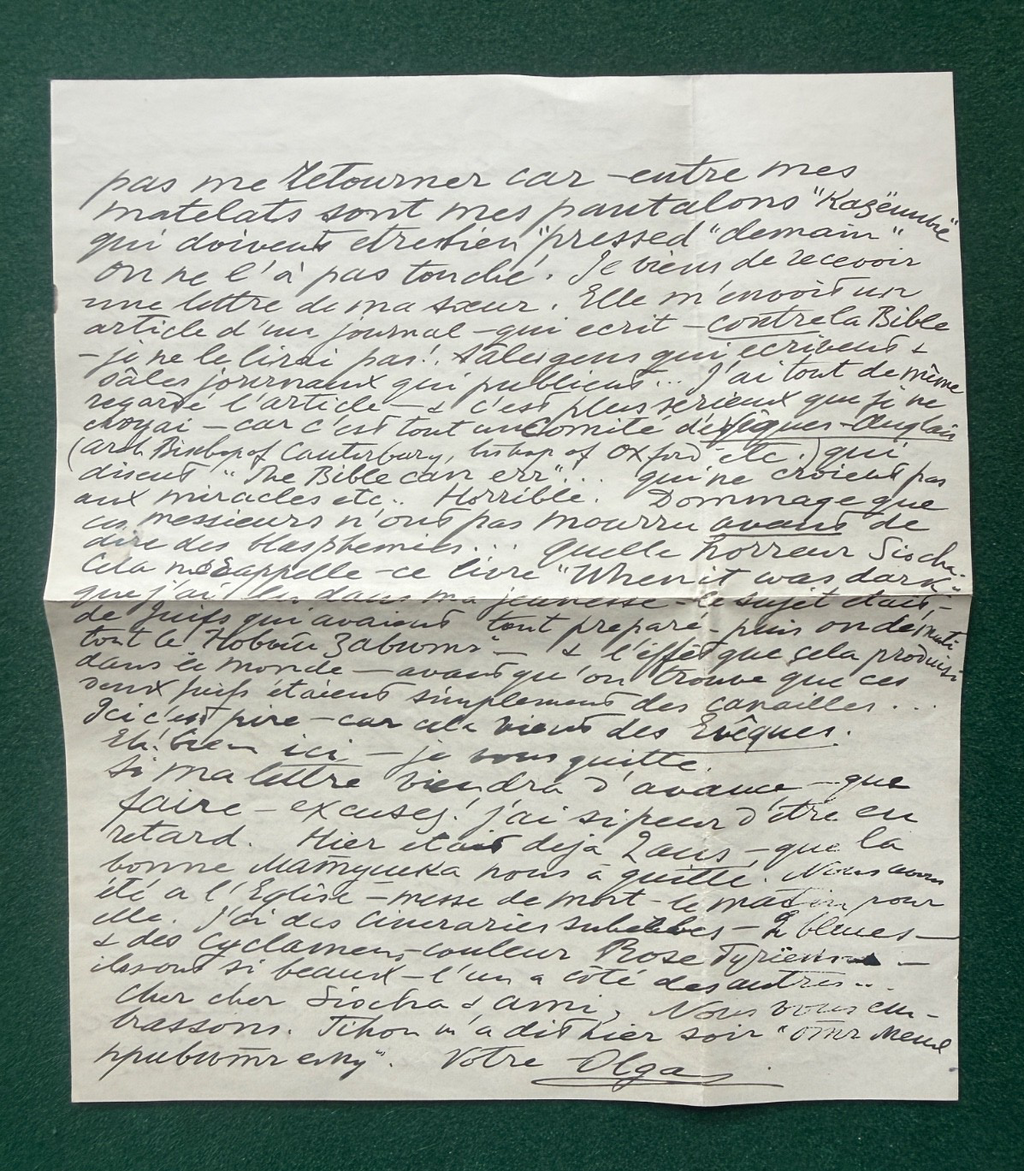 pas me retourner car - entre mes
matelats sont mes pantalons
qui doivent etre bien "pressed" demain"
On ne l'à pas touché. Je viens de recevoir
une lettre de ma sœur. Elle m'envoit un
article d'un journal - qui ecrit - contre la Bible
- je ne le lirai pas! Sales gens qui ecrivent &
sâles journaux qui publient... J'ai tout de même
regardé l'article - & c'est plus serieux que je ne
croyai - car c'est tout un Comité de Anglais
(arch Bishop of Canterbury, bishop of Oxford etc.) qui
disent "The Bible can err"... qui ne croient pas
aux miracles etc.. Horrible. Dommage que
ces messieurs n'ont pas mourru avant de
dire des blasphemies... quelle horreur Siocha.
Cela me rappelle - ce livre "When it was dark"
que j'ai lu dans ma jeunesse - le sujet était -
de Juifs qui avaient tout preparé - puis on
tout le - & l'effet que cela produisi
dans le monde - avant qu'on trouve que ces
deux juifs étaient simplement des canailles...
Ici c'est pire - car cela vient des Evêques.
Eh! bien ici - je vous quitte.
Si ma lettre viendra d'avance - que
faire - excusez! j'ai si peur d'être en
retard. Hier etait deja 2 ans - que la
bonne nous à quitté. Nous avons
été a l'Eglise - messe de mort - le matin pour
elle. J'ai des cineraries - 2 bleues -
& des Cyclamens - couleur Rose Tyrienne -
ils sont si beaux - l'un a côté des autres...
Cher cher Siocha & ami, Nous vous em-
brassons. Tihon m'a dit hier soir "отъ меня
привѣтъ ему". Votre Olga